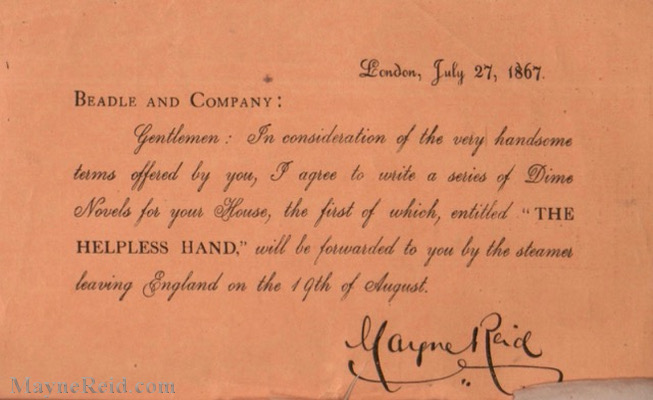 London, July 27, 1867.
BEADLE AND COMPANY:
Gentlemen: In consideration of the very handsome
terms offered by you, I agree to write a series of Dime
Novels for your House, the first of which, entitled "THE
HELPLESS HAND," will be forwarded to you by the steamer
leaving England on the 19th of August.
Mayne Reid
MayneReid.com